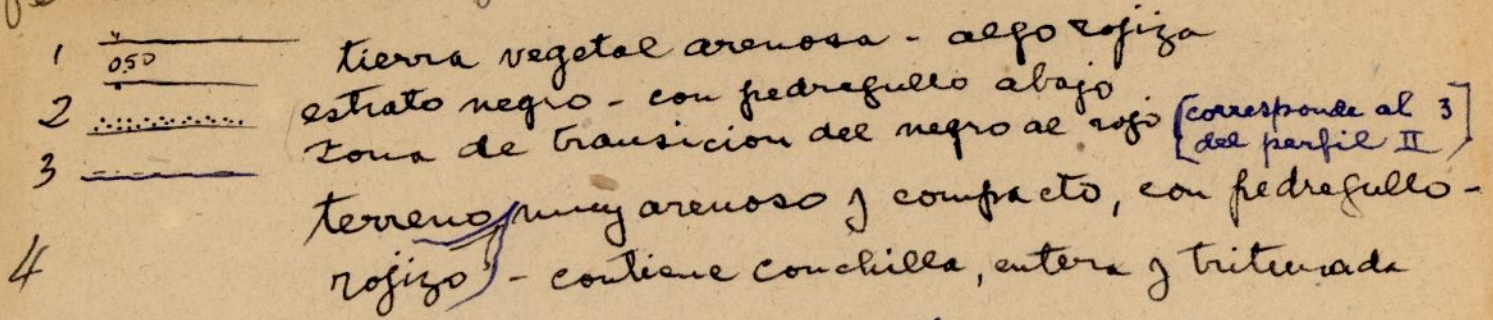 1 0.50 tierra vegetal arenosa - algo rojiza
2 estrato negro - con pedregullo abajo
3 zona de transicion del negro al rojo [corresponde al 3
del perfil II]
terreno muy arenoso y compacto, con pedregullo -
4 rojizo - contiene conchilla, entera y triturada